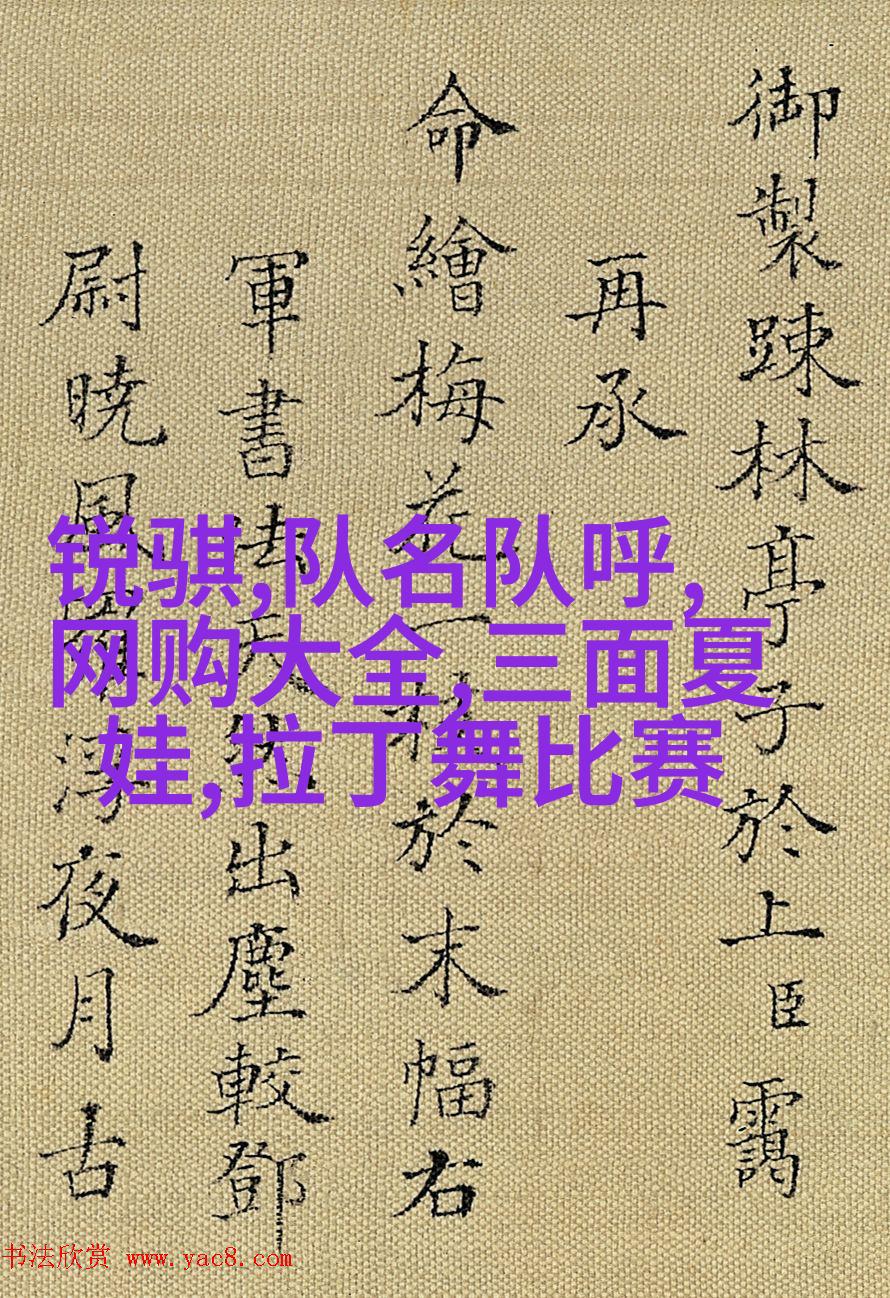 御製踈林亭子於上臣靄
再承
命繪梅花一枝於末幅右
軍書法天然出塵較鄧
尉曉風浮夜月古
锐骐,队名队呼,
网购大全,三面夏
娃,拉丁舞比赛
书法欣赏 www.yac8.com